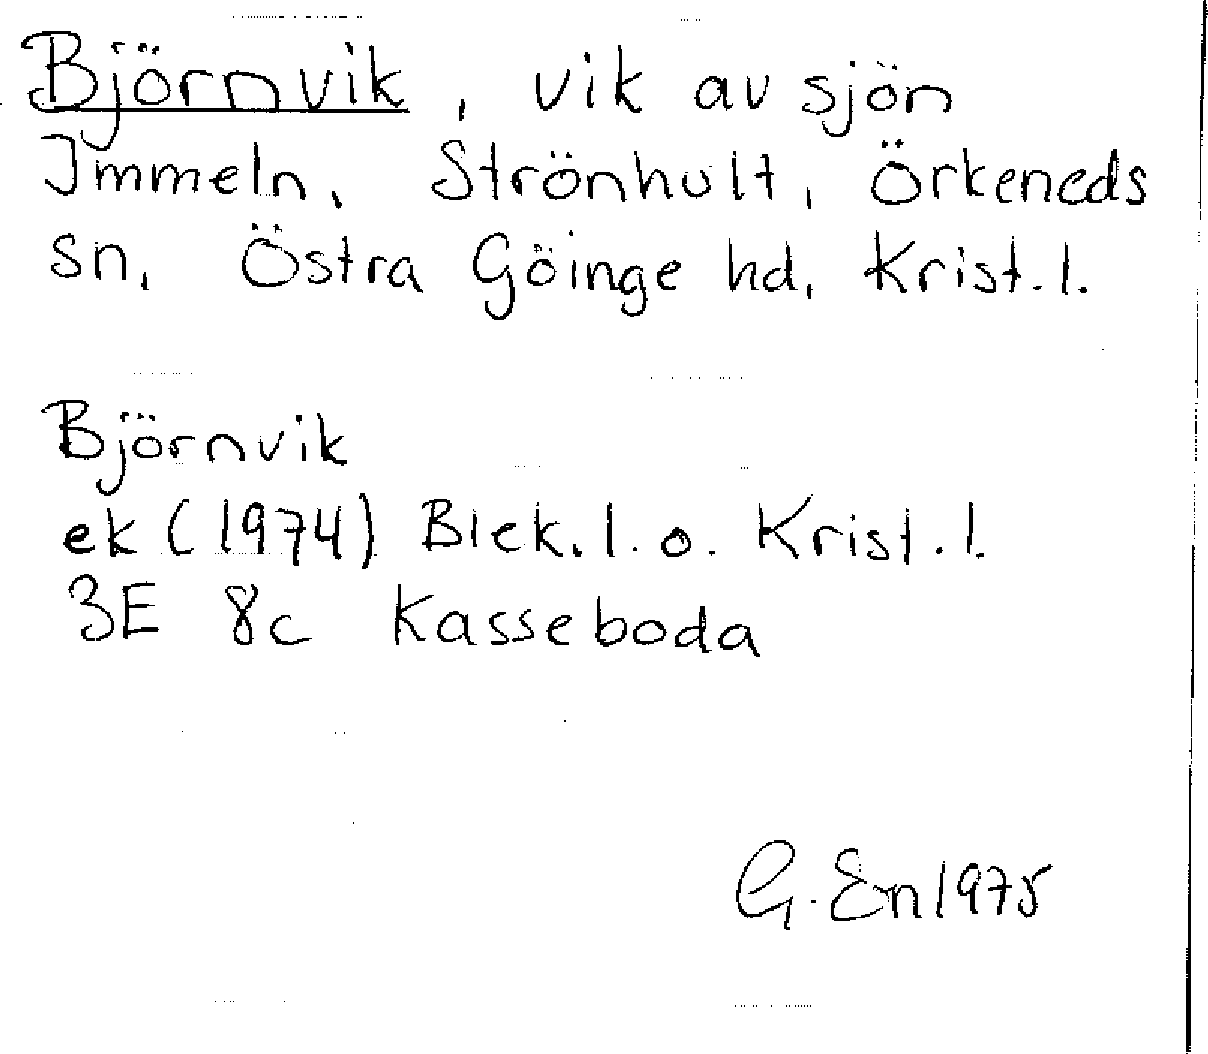 Björnvik, vik av sjön
Immeln, Strönhult, Örkeneds
sn, Östra Göinge hd, Krist. l.
Björnvik
ek (1974) Blek. l. o. Krist. l.
3E 8c Kasseboda
G. En 1975